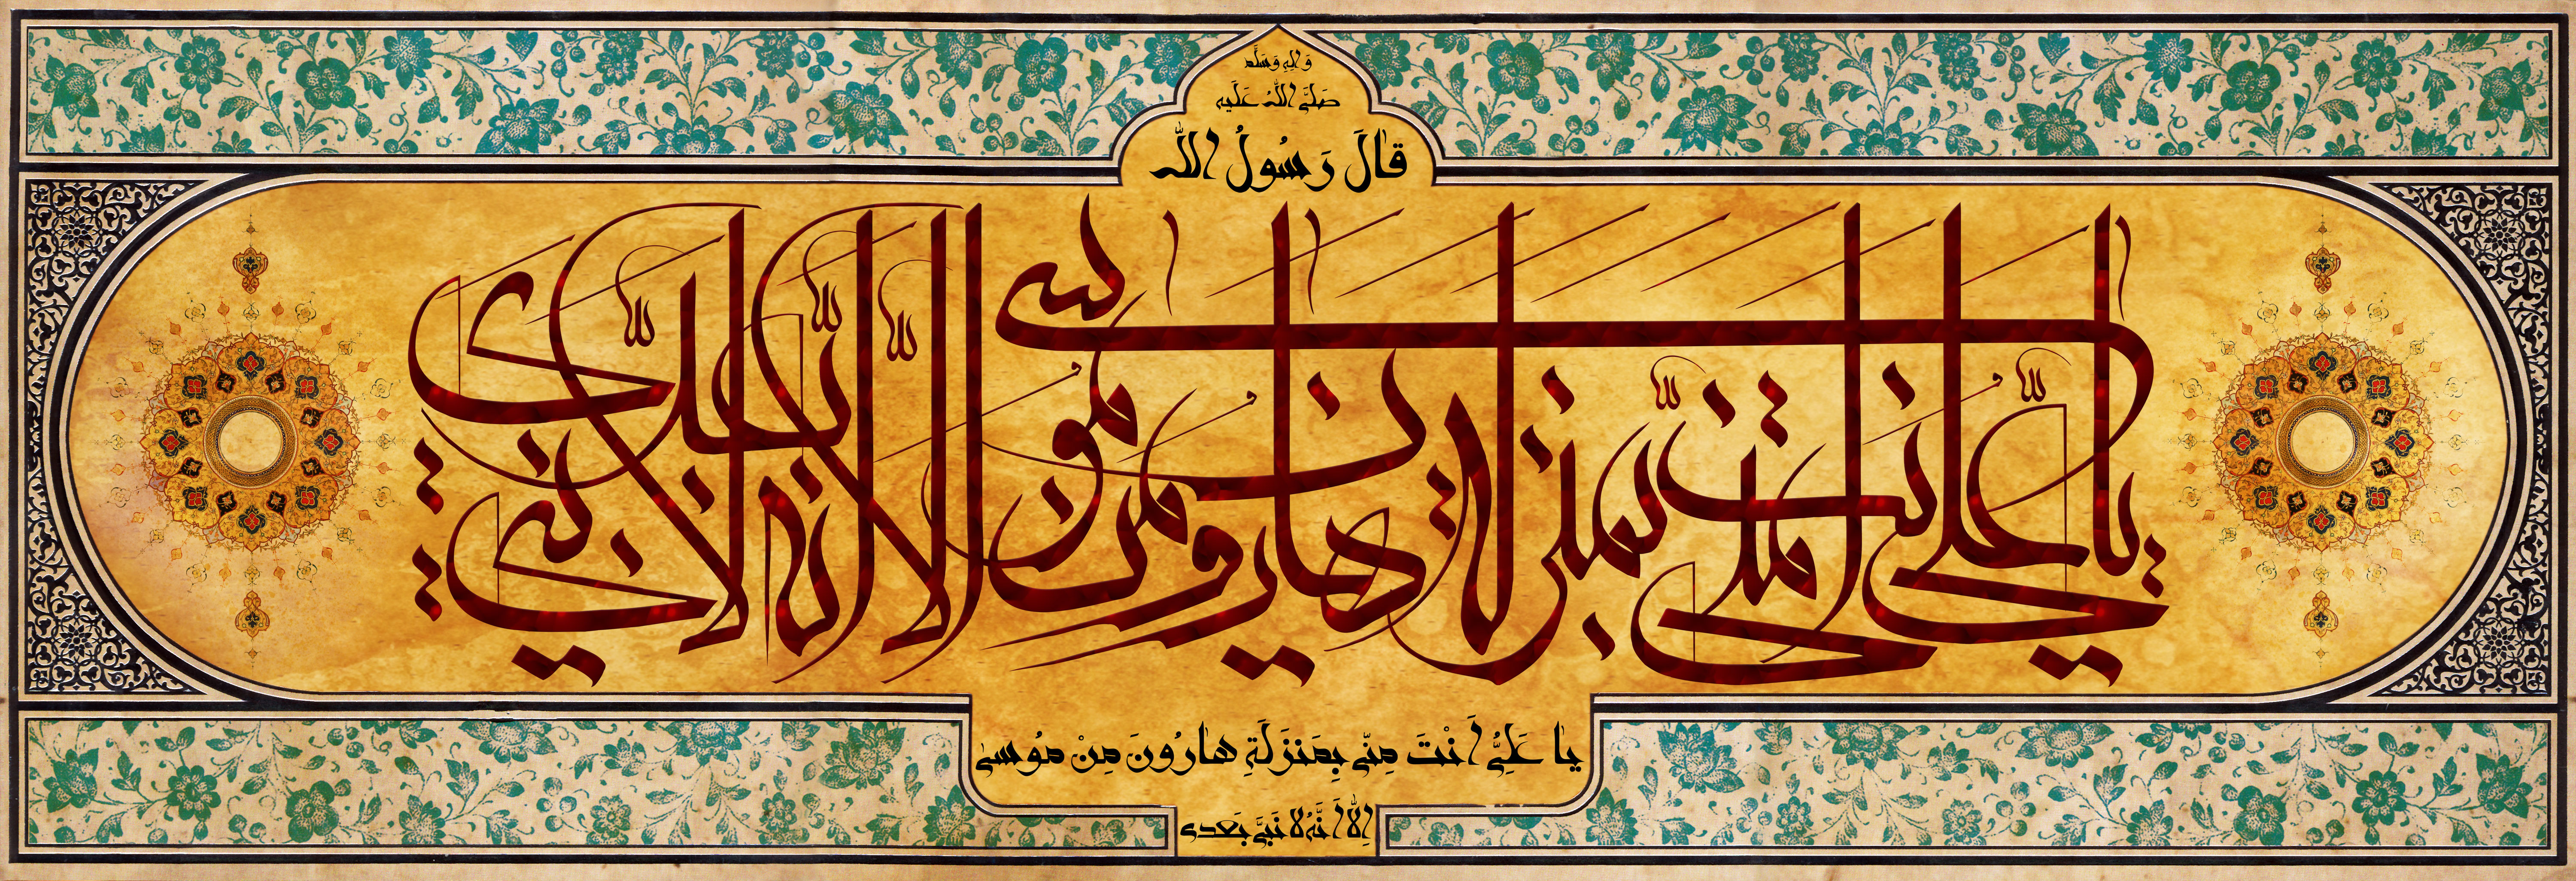 وَالِهِ وَسَلَّم
صَلَّى اللهُ عَلَيهِ
قالَ رَسُولُ الله
يا علي انت مني بمنزلة هارون من موسى الا انه لا نبي بعدي
يا عَلِيُّ اَنْتَ مِنّى بِمَنزَلَةِ هارُونَ مِنْ مُوسى
اِلّا اَنَّهُ لا نَبِىَّ بَعدى